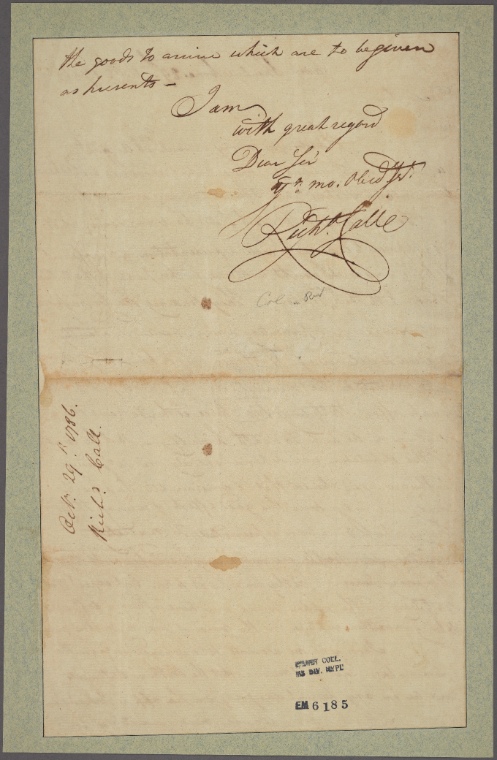 the goods to arrive which are to be given
as presents –
I am
with great regard
Dear Sir
Yr. mo. Obed Sr.
Richd. Call
Col
Oct. 29th. 1786.
Richd. Call.
EMMET COLL.
MS DIV. NYPL
EM 6185